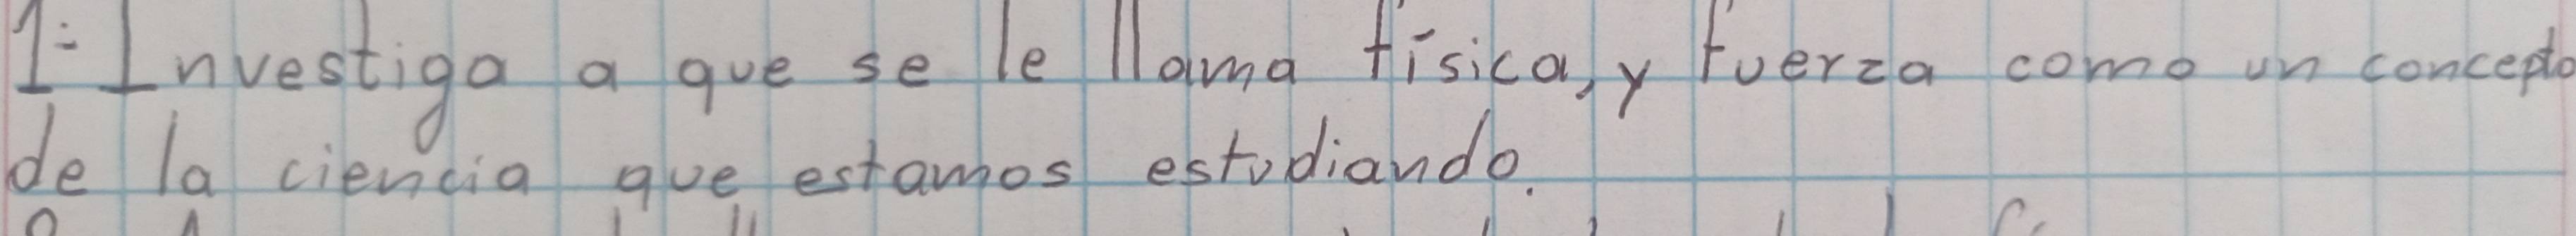 1- Investiga a que se le llama física, y fuerza como un concepto
de la ciencia que estamos estudiando.